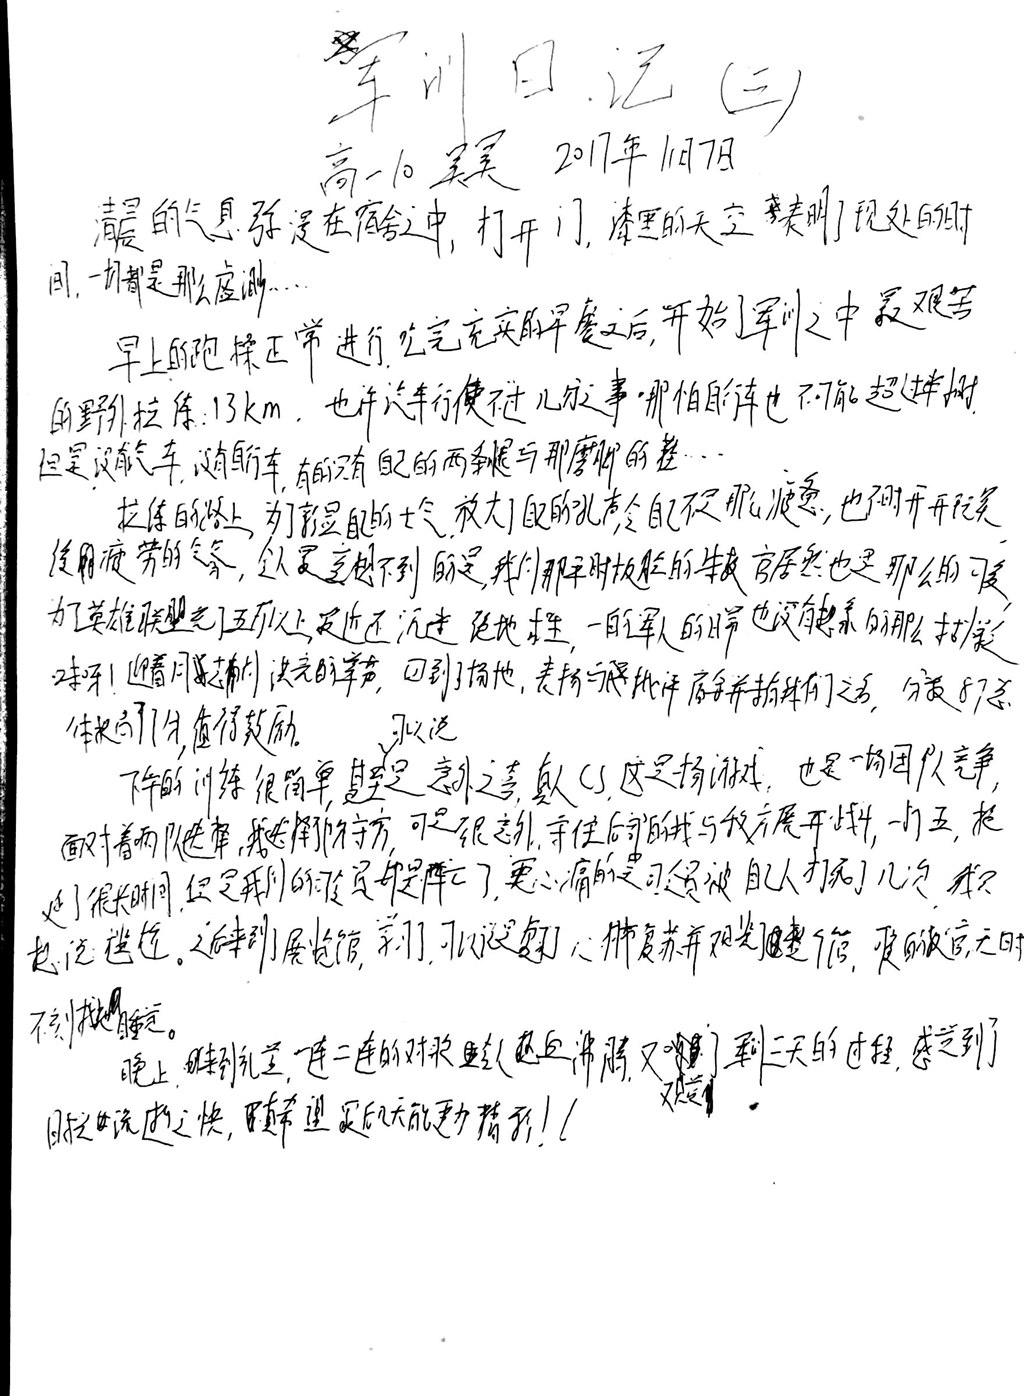 军训日记(三)
高一10 吴昊 2017年11月7日
清晨的气息弥漫在宿舍之中,打开门,漆黑的天空 表明了现处的时
间,一切都是那么虚渺……
早上的跑操正常进行,吃完充实的早餐之后,开始了军训之中最艰苦
的野外拉练:13km. 也许汽车行使不过几分之事,那怕自行车也不可能超过半小时.
但是没有汽车,没有自行车,有的只有自己的两条腿与那磨脚的鞋…
拉练的路上,为了彰显自己的士气,放大了自己的吼声令自己不足那么疲惫,也不时开开玩笑
缓解疲劳的气氛,令人更意想不到的是,我们那平时板脸的教官居然也是那么的可爱,
为了英雄联盟充了五万以上,最近还沉迷绝地求生,一自军人的日常也没有想象的那么
呀!迎着同 们 回到了场地,表扬与批评 之后,分数87总
体 提高了1分,值得鼓励。
下午的训练很简单,甚至可以说是意外之喜,真人CS,这是场游戏,也是一场团队竞争,
面对着两队选择,我选择防守方,可是很意外,守住后 的我与敌方展开战斗,一打五,拖
延了很长时间,但是我们的 员却是阵亡了,更心痛的是 被自己人打死了几次,我只
想说尴尬。之后来到了展览馆,学习了,可以说是复习了心肺复苏并观光了整个馆, 的教官,无时
不刻
晚上,来到礼堂,一连二连的对歌 热血沸腾,又观赏了军训三天的过程,感觉到了
时间流逝之快,真希望最后几天能更加精彩!!